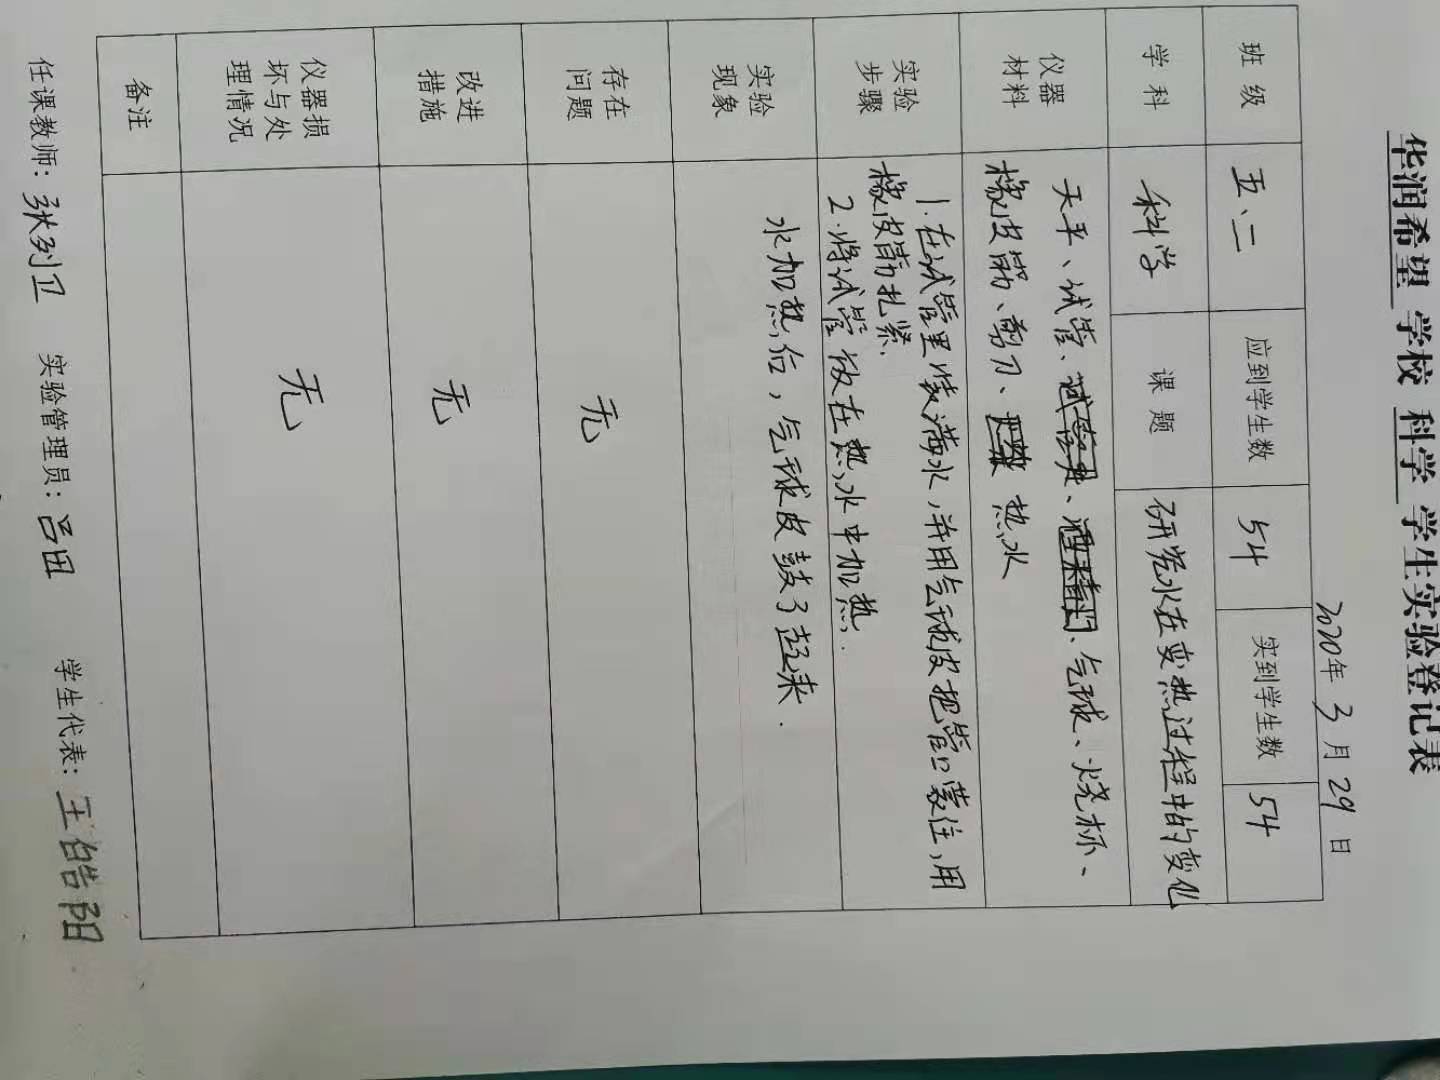 华润希望 学校 科学 学生实验登记表
2020年 3月 29日
班级 五、二 应到学生数 54 实到学生数 54
学科 科学 课题 研究水在变热过程中的变化
仪器材料
天平、试管、气球、烧杯、
橡皮筋、剪刀、热水
实验步骤
1.在试管里装满水,并用气球皮把管口蒙住,用
橡皮筋扎紧.
2.将试管放在热水中加热.
实验现象
水加热后,气球皮鼓了起来.
存在问题 无
改进措施 无
仪器损坏与处理情况 无
备注
任课教师:张列卫 实验管理员:吕田 学生代表:王皓阳